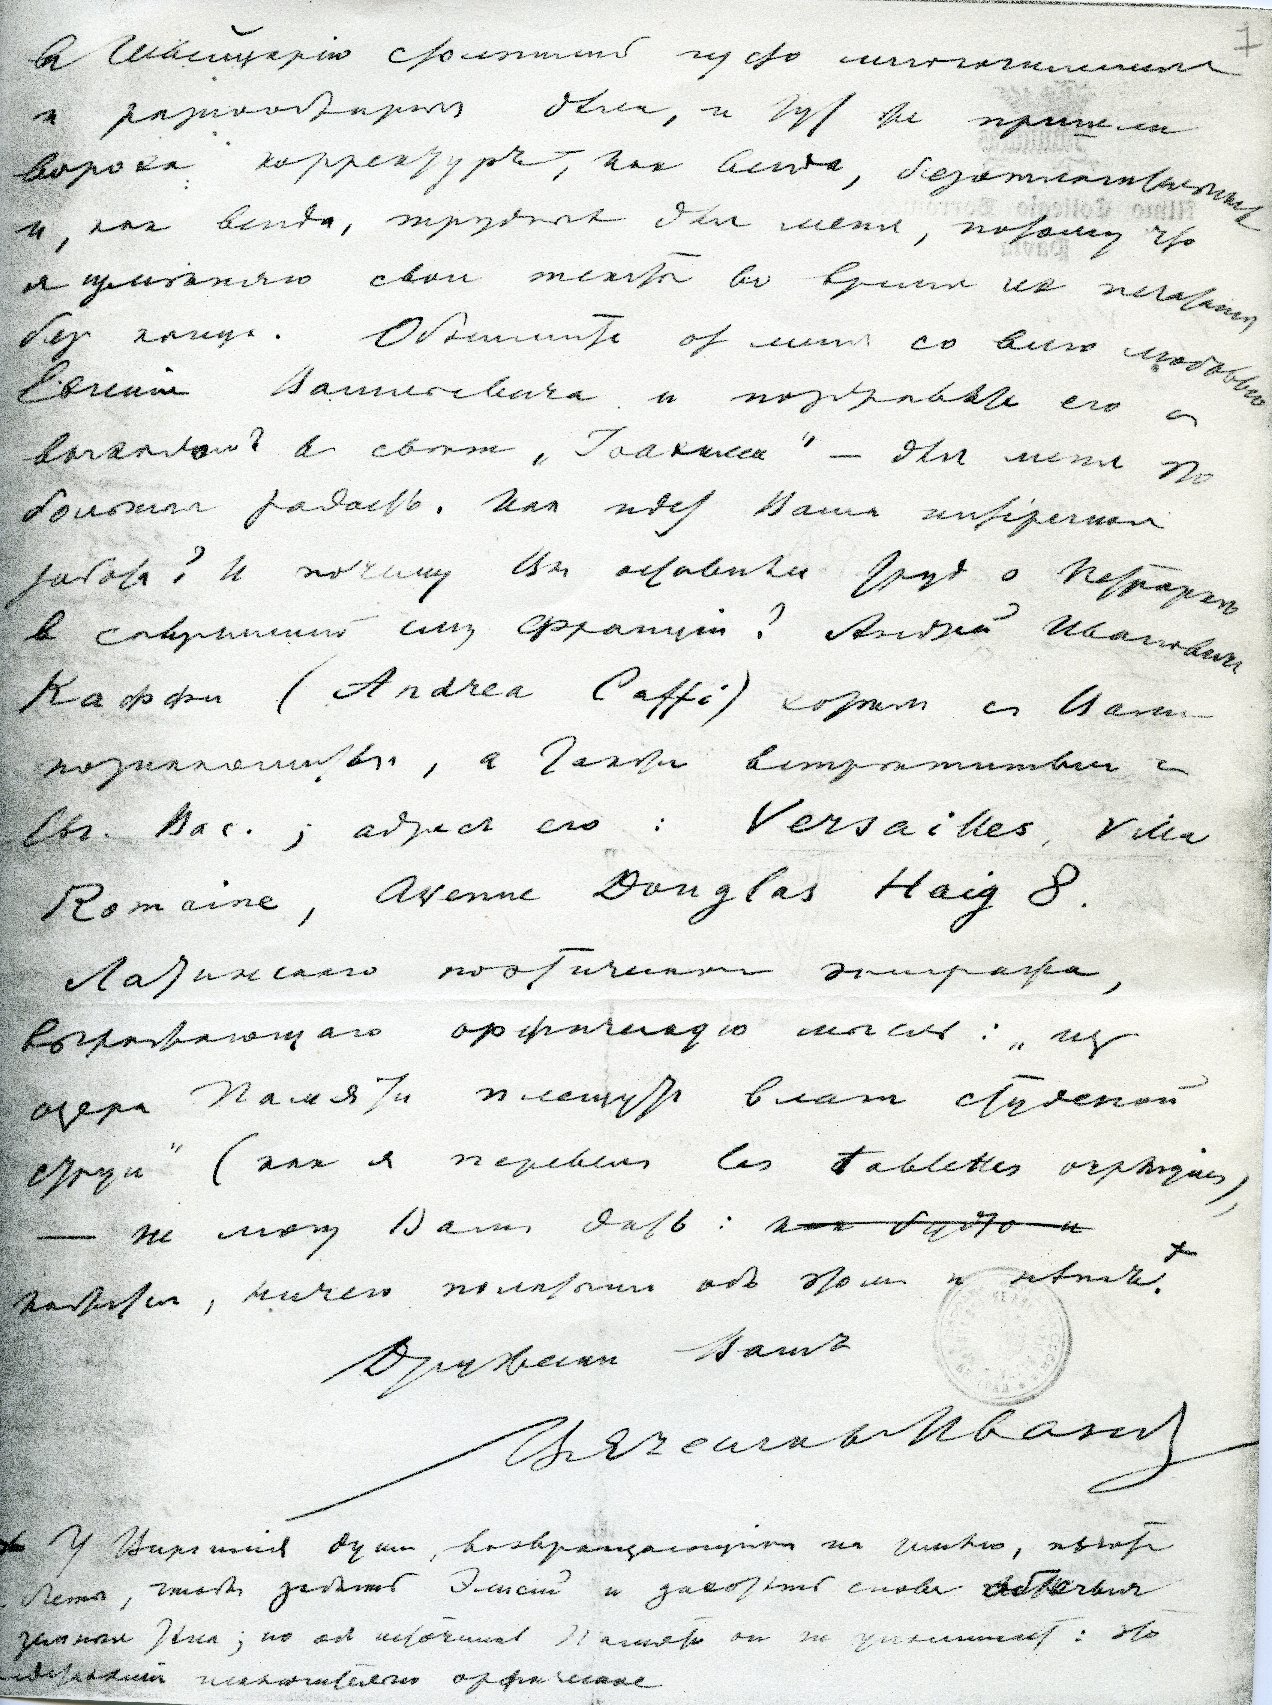 въ Швейцарію столкнулъ чуть многочисленныя
и разнообразныя дѣла, и тутъ же пришли
вороха корректуръ, какъ всегда, безотлагательныхъ
и, какъ всегда, трудныхъ для меня, потому что
я измѣняю свои тексты во время ихъ печатанія
безъ конца. Обнимите отъ меня со всею любовью
Евгенія Васильевича и поздравьте его съ
выходомъ въ свѣтъ „Іоакима" — для меня это
большая радость. Какъ идетъ Ваша интересная
работа? И почему Вы оставили трудъ о Петраркѣ
и современной ему Франціи? Андрей Ивановичъ
Каффи (Andrea Caffi) хотѣлъ съ Вами
познакомиться, а также встрѣтиться съ
Евг. Вас.; адресъ его: Versailles, Villa
Romaine, Avenue Douglas Haig 8.
Латинскаго поэтическаго эпиграфа,
выражающаго орфическую мысль: „изъ
озера Памяти плещутъ влага студеной
струи" (какъ я перевелъ les tablettes orphiques),
— не могу Вамъ дать:
кажется, ничего латиняне объ этомъ и не пѣли.+
Дружески Вашъ
Вячеславъ Ивановъ
+ У Виргилія души, возвращающіяся на землю, пьютъ
Лету, чтобы забыть Элисій и захотѣть снова
земныя тѣла; но объ источникѣ Памяти онъ не упоминаетъ: это
исключительно орфическое